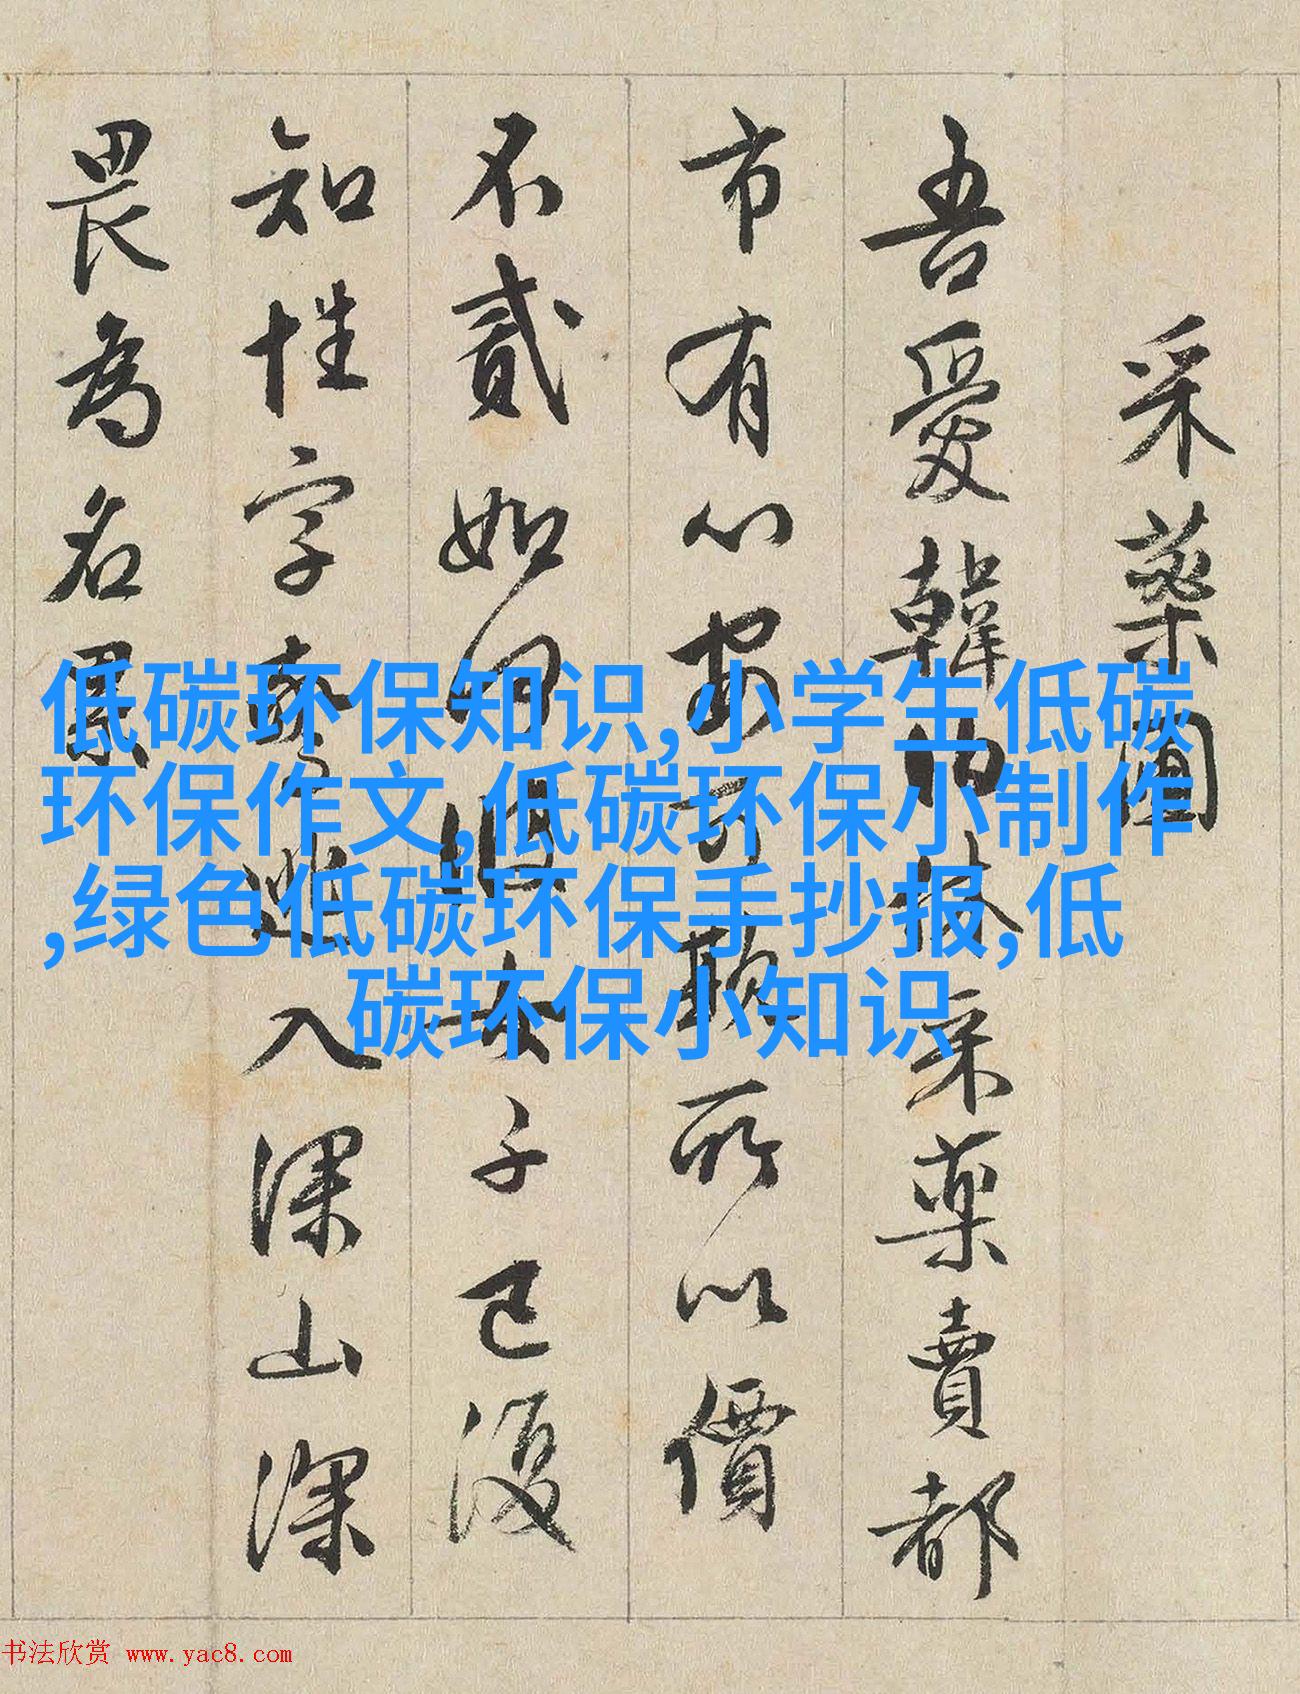 采藥圃
吾愛韓伯休采藥賣都
市有心安可欺所以價
不貳如何女子已復
知性字逃入深山深
畏為名累
低碳环保知识,小学生低碳
环保作文,低碳环保小制作
,绿色低碳环保手抄报,低
碳环保小知识
书法欣赏 www.yac8.com